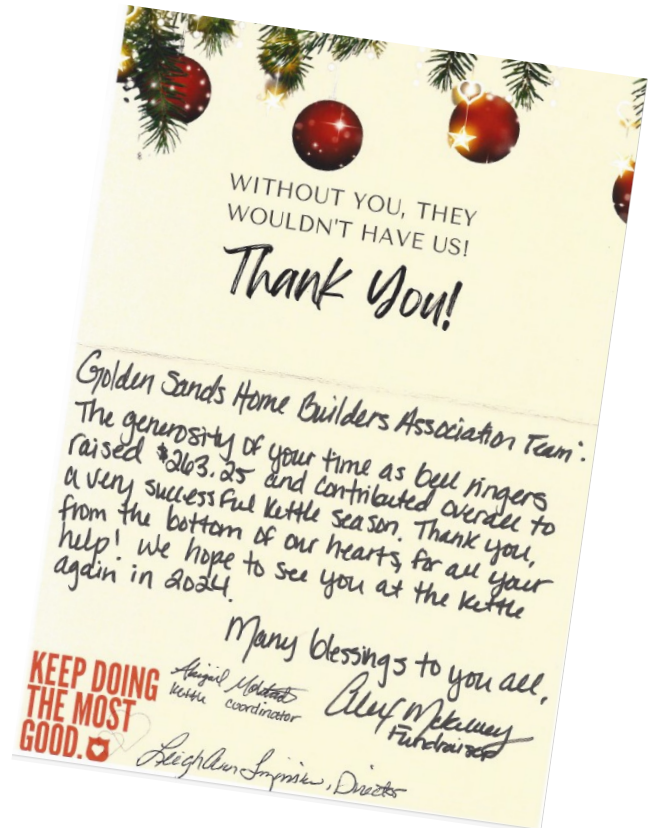 WITHOUT YOU, THEY
WOULDN'T HAVE US!
Thank You!
Golden Sands Home Builders Association Team:
The generosity of your time as bell ringers
raised $263.25 and contributed overall to
a very successful Kettle season. Thank you,
from the bottom of our hearts, for all your
help! We hope to see you at the Kettle
again in 2024.
Many blessings to you all,
KEEP DOING
THE MOST
GOOD.
Abigail
Kettle coordinator
Alex McKelvey
Fundraiser
LeighAnn , Director